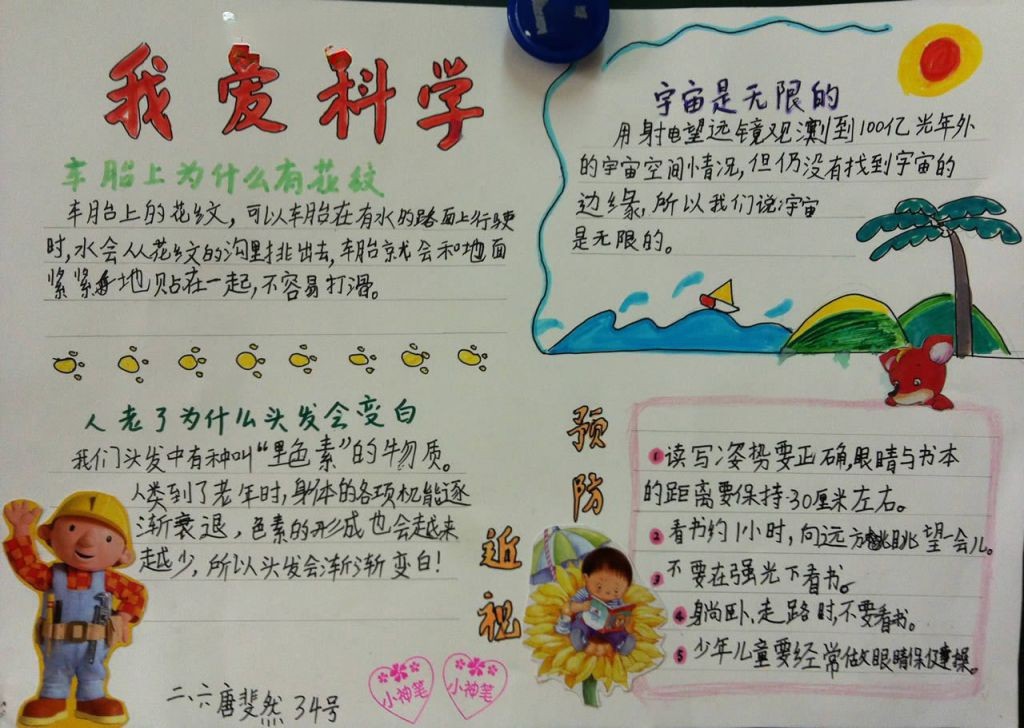 我爱科学
车胎上为什么有花纹
车胎上的花纹，可以车胎在有水的路面上行驶
时，水会从花纹的沟里排出去，车胎就会和地面
紧紧地贴在一起，不容易打滑。
人老了为什么头发会变白
我们头发中有种叫“黑色素”的物质。
人类到了老年时，身体的各项机能逐
渐衰退，色素的形成也会越来
越少，所以头发会渐渐变白！
二、六唐斐然 34号
小神笔
小神笔
宇宙是无限的
用射电望远镜观测到100亿光年外
的宇宙空间情况，但仍没有找到宇宙的
边缘，所以我们说宇宙
是无限的。
预防近视
1 读写姿势要正确，眼睛与书本
的距离要保持30厘米左右。
2 看书约1小时，向远方眺望一会儿。
3 不要在强光下看书。
4 躺卧、走路时，不要看书。
5 少年儿童要经常做眼睛保健操。